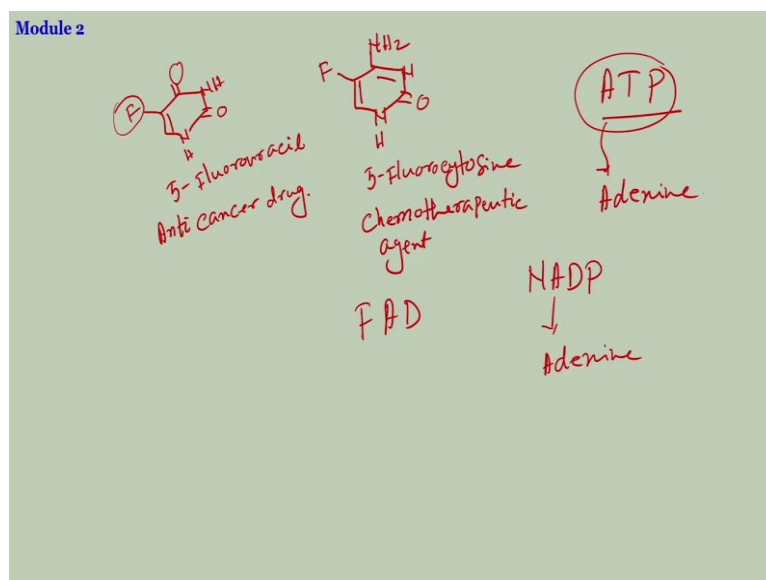 Module 2
O
F
NH
O
N
H
5-Fluorouracil
Anti cancer drug.
NH2
F
N
O
N
H
5-Fluorocytosine
Chemotherapeutic
agent
ATP
Adenine
FAD
NADP
Adenine